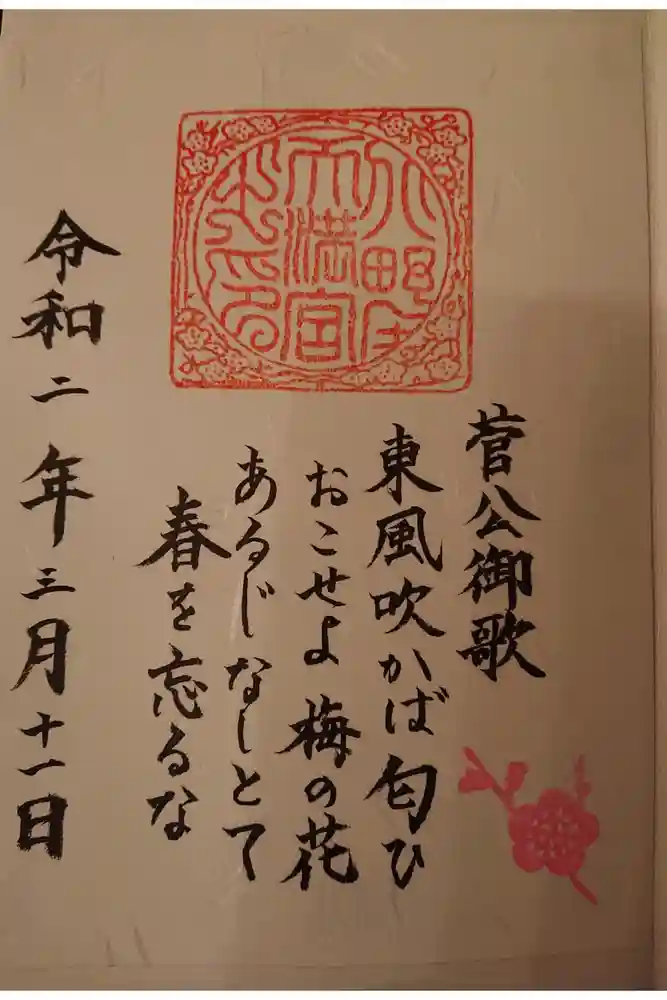 天満宮
菅公御歌
東風吹かば匂ひ
おこせよ梅の花
あるじなしとて
春を忘るな
令和二年三月十一日